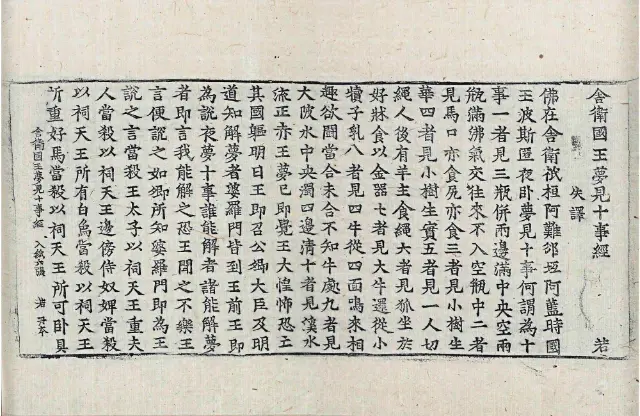 舍衛國王夢見十事經　若
失譯
佛在舍衛祇桓阿難邠坻阿藍時國
王波斯匿夜卧夢見十事何謂為十
事一者見三瓶併兩邊滿中央空兩
瓶滿沸氣交往來不入空瓶中二者
見馬口亦食尻亦食三者見小樹生
華四者見小樹生實五者見一人切
繩人後有羊主食繩六者見狐坐於
好牀食以金器七者見大牛還從小
犢子乳八者見四牛從四面鳴來相
趣欲鬪當合未合不知牛處九者見
大陂水中央濁四邊清十者見溪水
流正赤王夢已即覺王大惶怖恐亡
其國軀明日王即召公卿大臣及明
道知解夢者婆羅門皆到王前王即
為說夜夢十事誰能解者諸能解夢
者即言我能解之恐王聞之不樂王
言便說之如卿所知婆羅門即為王
說之言當殺王太子以祠天王重夫
人當殺以祠天王邊傍侍奴婢當殺
以祠天王所有白象當殺以祠天王
所重好馬當殺以祠天王所可卧具
舍衛國王夢見十事經　六張　若